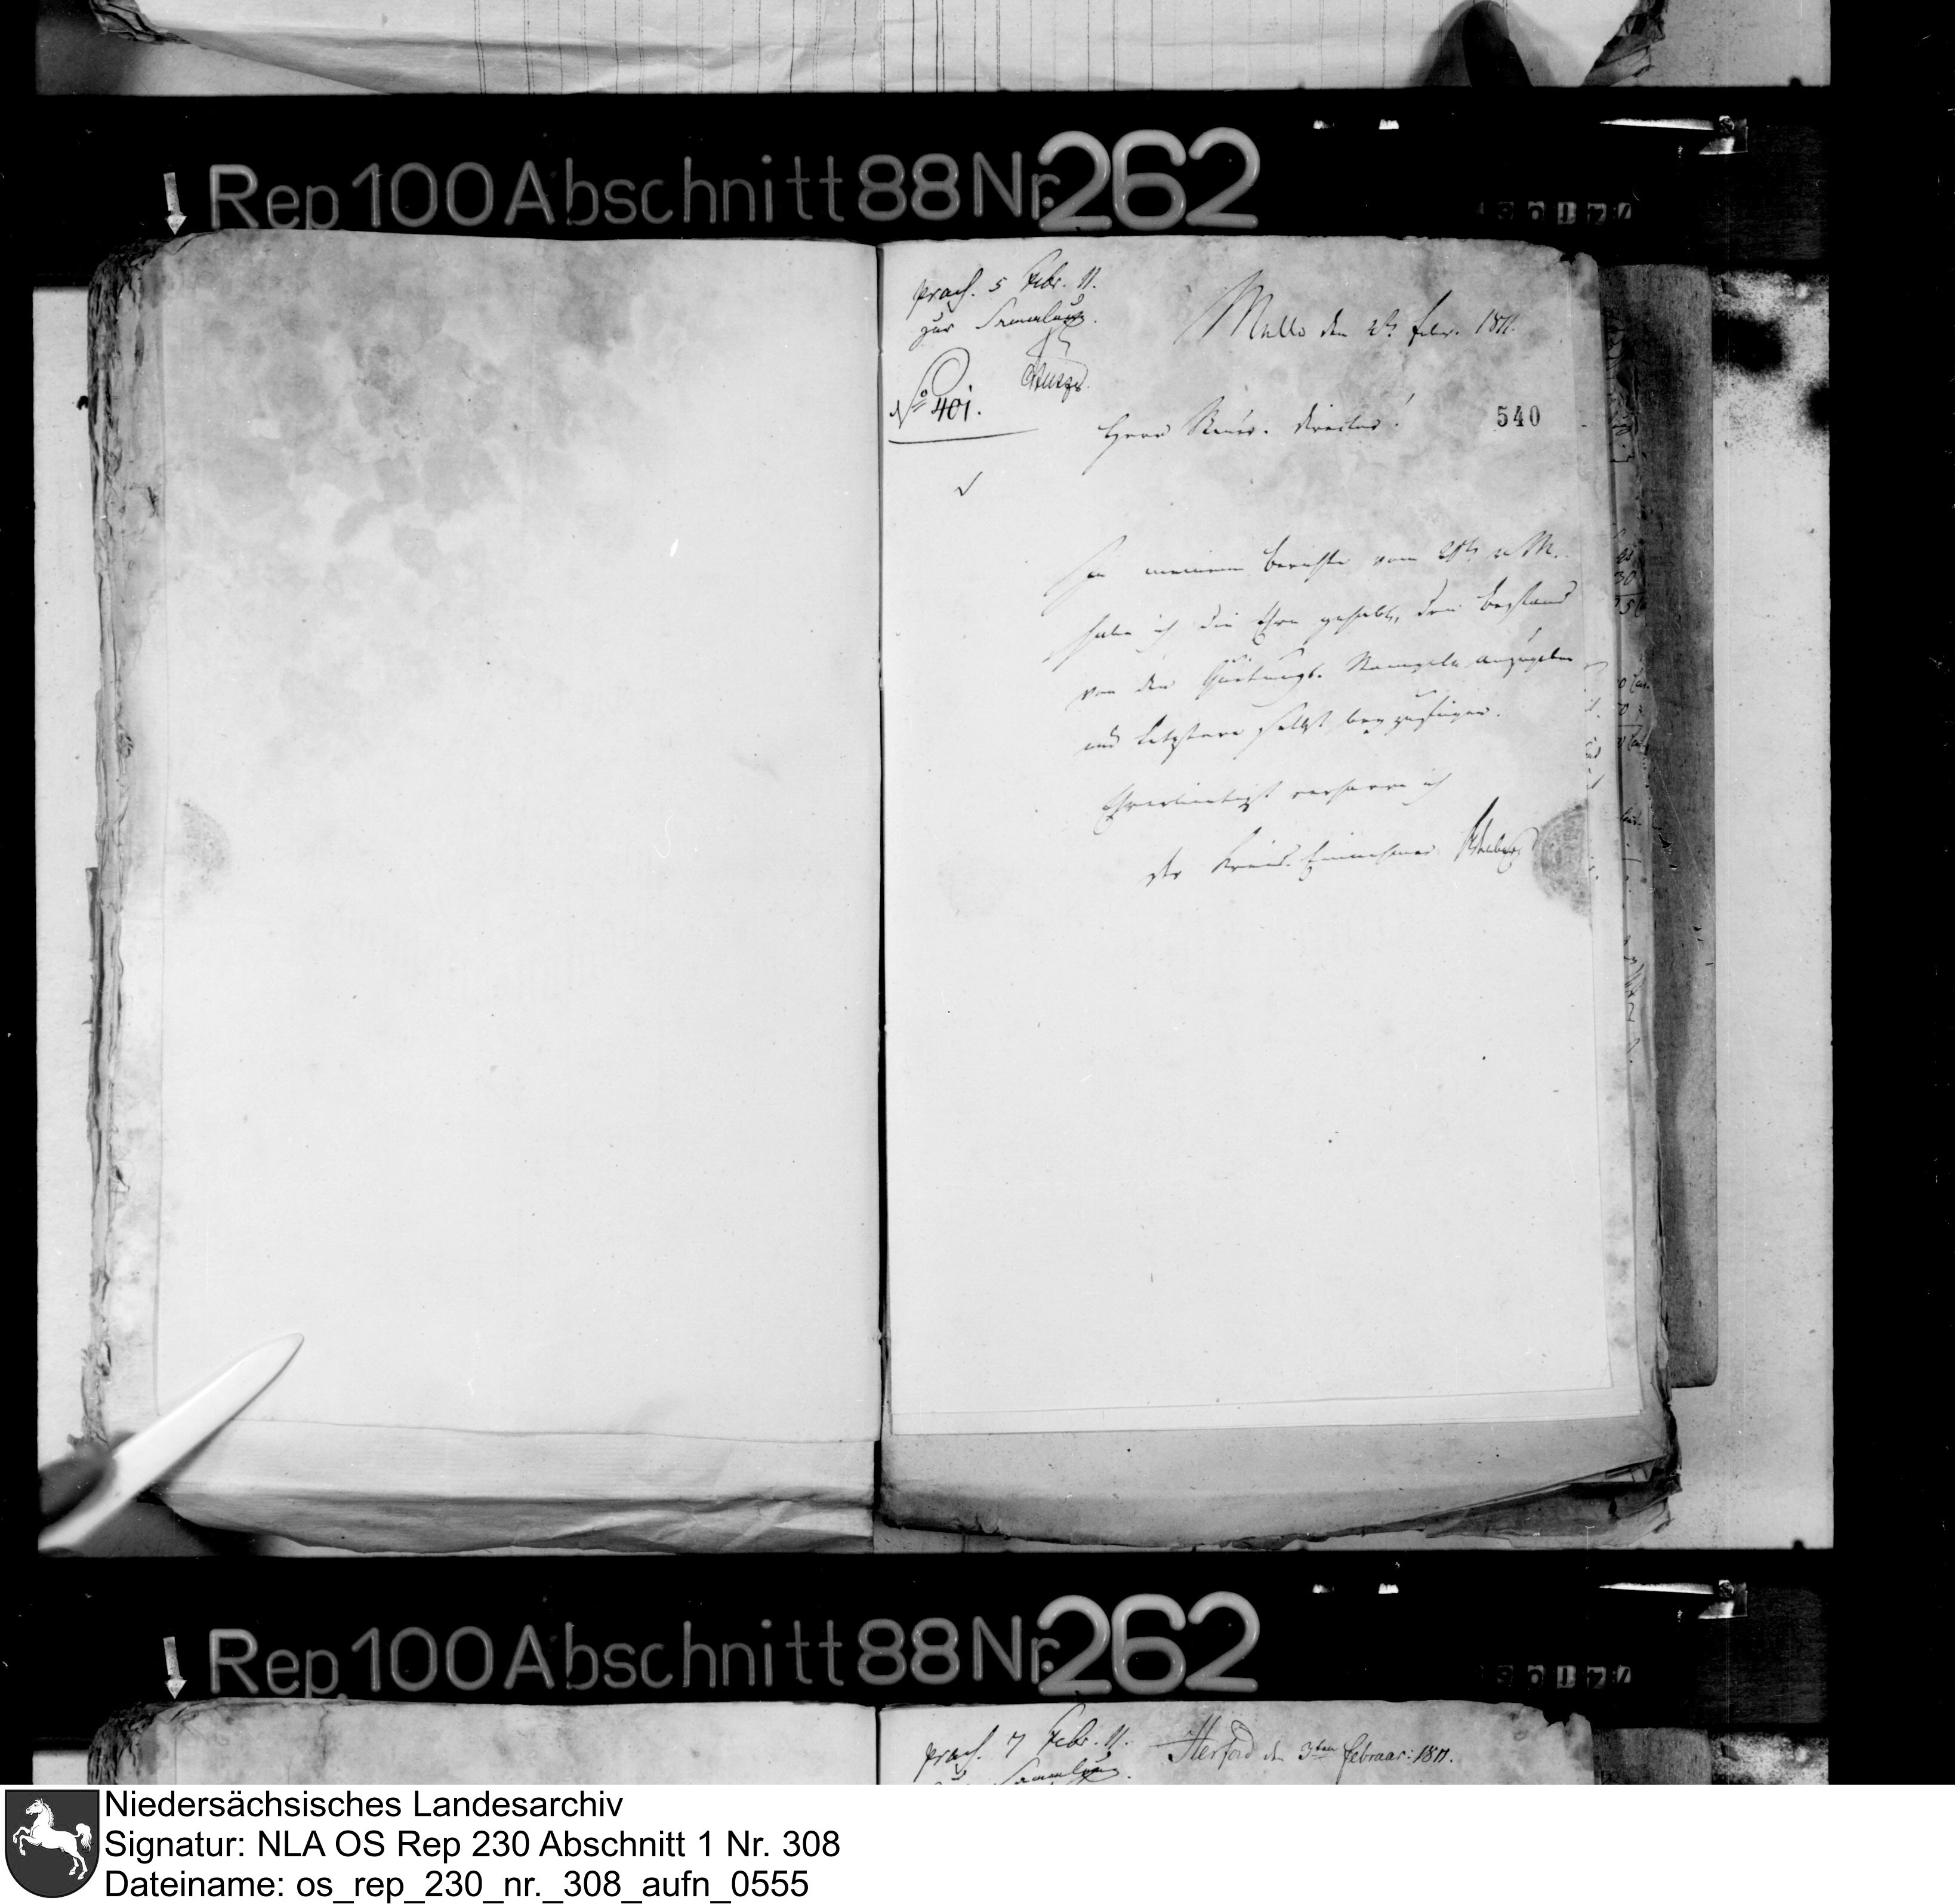 Rep 100 Abschnitt 88 Nr. 262
praes. 5 Febr. 11.
zur Sammlung.
Melle den 2ten febr. 1811.
No 401.
Herr Steuer-Director!
540
In meinem Berichte vom v. M.
habe ich die Ehre gehabt, den Bestand
von den Stempeln anzugeben
und Letztere selbst beyzufügen.
Ehrerbietigst verharre ich
der Kreis-Einnehmer
Rep. 100 Abschnitt 88 Nr. 262
praes. 7 Febr. 11.
Herford den 3ten Februar: 1811.
zur Sammlung.
Niedersächsisches Landesarchiv
Signatur: NLA OS Rep 230 Abschnitt 1 Nr. 308
Dateiname: os_rep_230_nr._308_aufn_0555